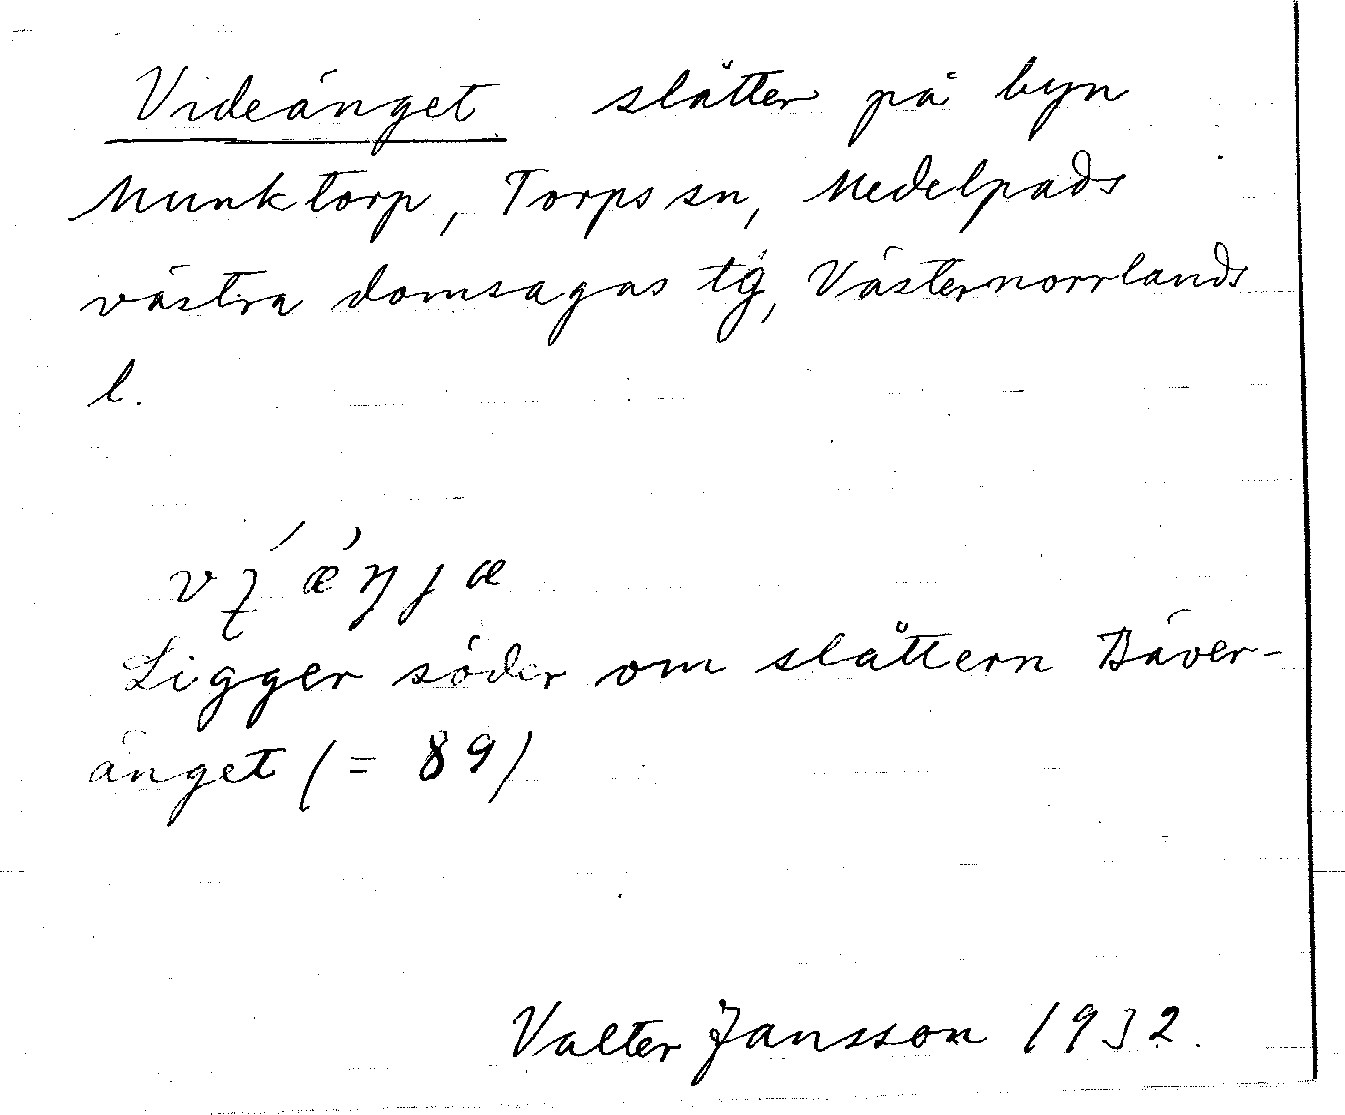 Videänget slåtter på byn
Munktorp, Torps sn, Medelpads
västra domsagas tg, Västernorrlands
l.
Ligger söder om slåttern Bäver-
änget (= 89)
Valter Jansson 1932.